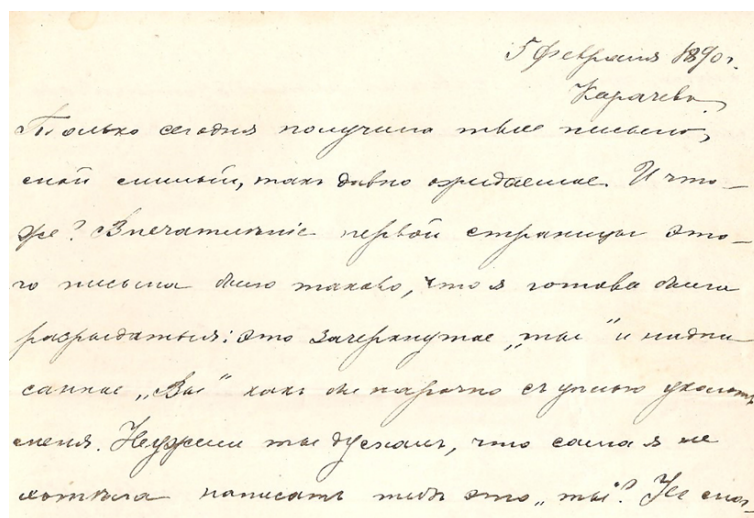 5 февраля 1890 г.
Карачевъ.
Только сегодня получила твое письмо,
мой милый, такъ давно ожидаемое. И что-
же? Впечатлѣніе первой страницы это-
го письма было таково, что я готова была
разрыдаться: это зачеркнутое „ты“ и надпи
санное „Вы“ какъ бы нарочно съ цѣлью уколоть
меня. Неужели ты думалъ, что сама я не
хотѣла написать тебѣ это „ты“? Не